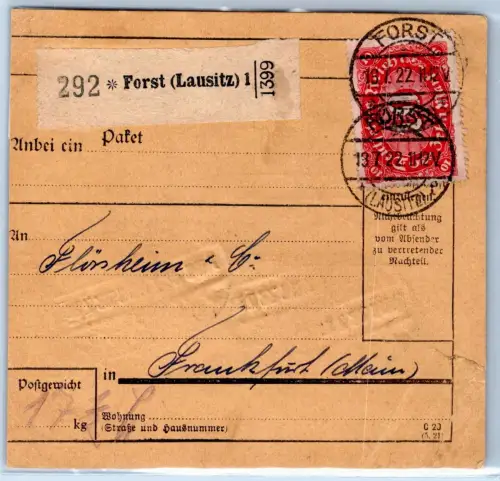 FORST
13.7.22.11-12V
292 * Forst (Lausitz) 1
1399
FORST
13.7.22.11-12V
(LAUSITZ)
Anbei ein Paket
Nichtbeachtung
gilt als
vom Absender
zu vertretender
Nachteil.
An
Flörsheim & Co.
in Frankfurt (Main)
Postgewicht
kg
Wohnung
(Straße und Hausnummer)
C 23